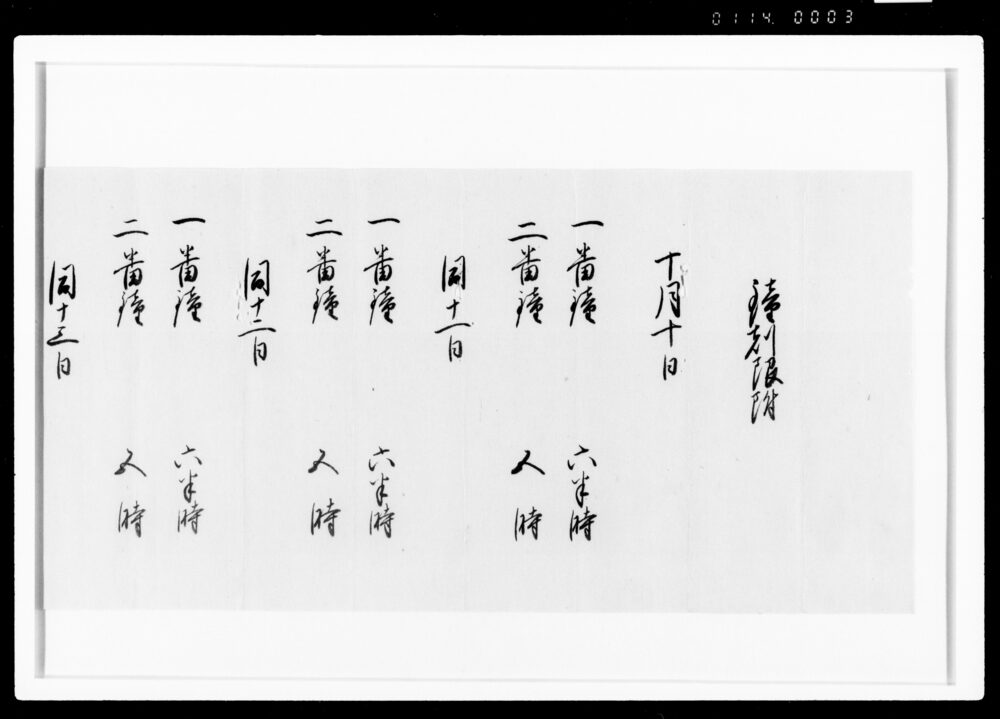 0114. 0003
鐘刻限附
十月十日
一番鐘 六半時
二番鐘 五時
同十一日
一番鐘 六半時
二番鐘 五時
同十二日
一番鐘 六半時
二番鐘 五時
同十三日